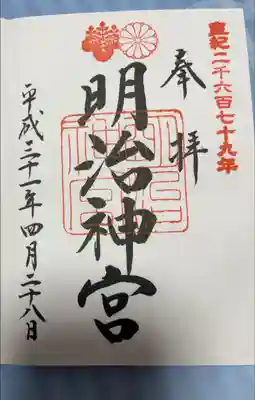 皇紀二千六百七十九年
奉拝
明治神宮
平成三十一年四月二十八日